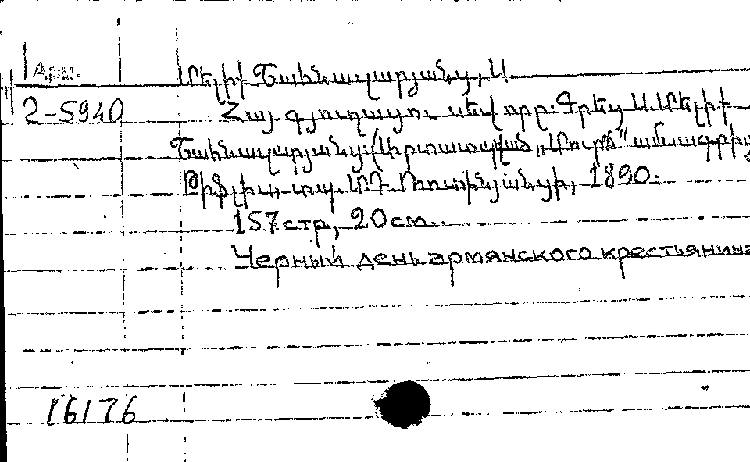 Арм.
Մելիք Շահնազարյանց, Ա.
2-5940
Հայ գյուղացու սեվ օրը. Գրեց Ա. Մելիք
Շահնազարյանց. (Արտատպված „Մուրճ" ամսագրից
Թիֆլիս, տպ. Մ. Դ. Ռոտինյանցի, 1890.
157 стр, 20 см.
Черный день армянского крестьянина
16176